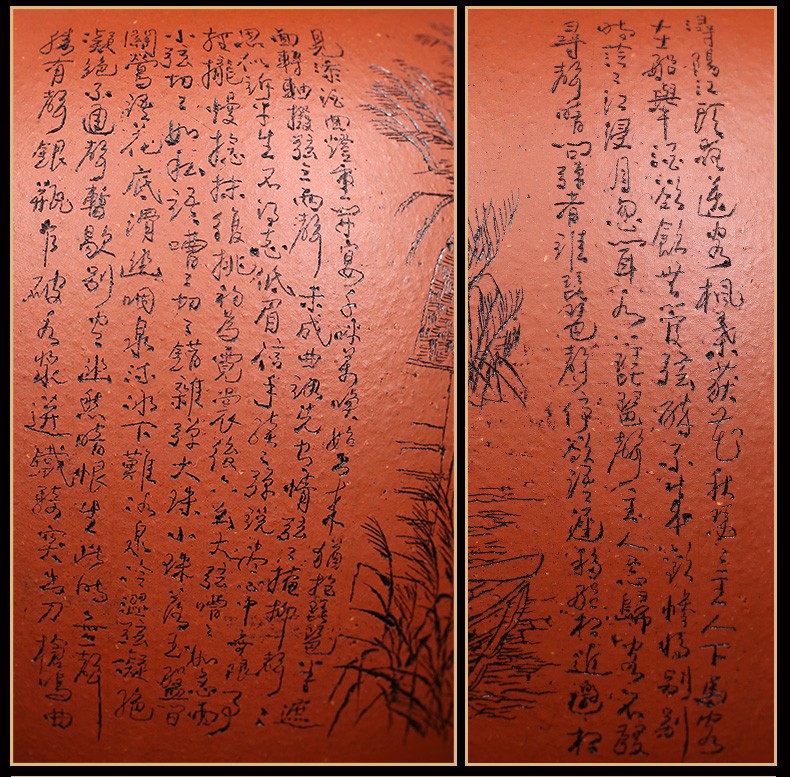 潯陽江頭夜送客楓葉荻花秋瑟〻主人下馬客
在船舉酒欲飲無管弦醉不成歡慘將別別
時茫〻江浸月忽聞水上琵琶聲主人忘歸客不發
尋聲暗問彈者誰琵琶聲停欲語遲移船相近邀相
見添酒回燈重開宴千呼萬喚始出來猶抱琵琶半遮
面轉軸撥弦三兩聲未成曲調先有情弦〻掩抑聲〻
思似訴平生不得志低眉信手續〻彈說盡心中無限事
輕攏慢捻抹復挑初為霓裳後六幺大弦嘈〻如急雨
小弦切〻如私語嘈〻切〻錯雜彈大珠小珠落玉盤間
關鶯語花底滑幽咽泉流冰下難冰泉冷澀弦凝絕
凝絕不通聲暫歇別有幽愁暗恨生此時無聲
勝有聲銀瓶乍破水漿迸鐵騎突出刀槍鳴曲